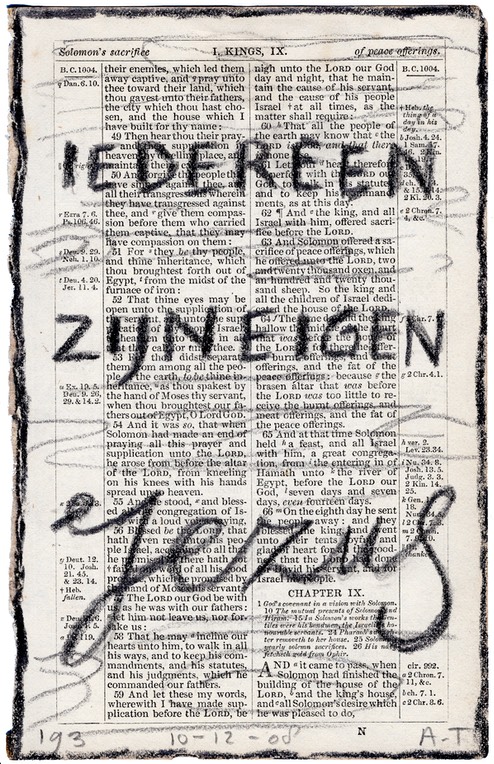 Solomon's sacrifice I. KINGS, IX. of peace offerings.
IEDEREEN
ZIJN EIGEN
Jezus
B.C. 1004.
q Dan. 6. 10.
r Ezra 7. 6.
Ps. 106. 46.
s Deu. 9. 29.
Neh. 1. 10.
t Deu. 4. 20.
Jer. 11. 4.
u Ex. 19. 5.
Deu. 9. 26,
29. & 14. 2.
y Deut. 12.
10. Josh.
21. 45.
& 23. 14.
† Heb.
fallen.
their enemies, which led them
away captive, and pray unto
thee toward their land, which
thou gavest unto their fathers,
the city which thou hast cho-
sen, and the house which I
have built for thy name:
49 Then hear thou their pray-
50 And forgive thy people
all their transgressions wherein
they have transgressed against
thee, and give them compas-
sion before them who carried
them captive, that they may
have compassion on them:
51 For they be thy people,
and thine inheritance, which
thou broughtest forth out of
Egypt, from the midst of the
furnace of iron:
52 That thine eyes may be
open unto the supplication
53 thou didst separate
them from among all the peo-
ple of the earth, to be thine in-
heritance, as thou spakest by
the hand of Moses thy servant,
when thou broughtest our fa-
thers out of Egypt, O Lord GOD.
54 And it was so, that when
Solomon had made an end of
praying all this prayer and
supplication unto the LORD,
he arose from before the altar
of the LORD, from kneeling
on his knees with his hands
spread up to heaven.
55 And he stood, and bless-
ed all the congregation of Is-
rael with a loud voice, saying,
56 Blessed be the LORD, that
hath given rest unto his peo-
ple Israel, according to all that
The LORD our God be with
us, as he was with our fathers:
let him not leave us, nor for-
sake us:
58 That he may incline our
hearts unto him, to walk in all
his ways, and to keep his com-
mandments, and his statutes,
and his judgments, which he
commanded our fathers.
59 And let these my words,
wherewith I have made sup-
plication before the LORD, be
nigh unto the LORD our God
day and night, that he main-
tain the cause of his servant,
and the cause of his people
Israel † at all times, as the
matter shall require:
60 That all the people of
the earth may know that the
61 Let your heart therefore
be perfect with the LORD
and to keep his command-
ments, as at this day.
62 ¶ And the king, and all
Israel with him, offered sacri-
fice before the LORD.
63 And Solomon offered a sa-
crifice of peace offerings, which
he offered unto the LORD, two
and twenty thousand oxen, and
an hundred and twenty thou-
sand sheep. So the king and
all the children of Israel dedi-
cated the house of the LORD.
64 The same day did the king
offerings, and the fat of the
peace offerings: because the
brasen altar that was before
the LORD was too little to re-
ceive the burnt offerings, and
meat offerings, and the fat of
the peace offerings.
65 And at that time Solomon
held a feast, and all Israel
with him, a great congrega-
tion, from the entering in of
Hamath unto the river of
Egypt, before the LORD our
God, seven days and seven
days, even fourteen days.
66 On the eighth day he sent
the people away: and they
blessed the king, and went
unto their tents joyful and
glad of heart for all the good-
David his servant, and for
Israel his people.
CHAPTER IX.
1 God's covenant in a vision with Solomon.
10 The mutual presents of Solomon and
Hiram. 15 In Solomon's works the Gen-
tiles were his bondmen, the Israelites ho-
nourable servants. 24 Pharaoh's daugh-
ter removeth to her house. 25 Solomon's
yearly solemn sacrifices. 26 His navy
fetcheth gold from Ophir.
AND it came to pass, when
Solomon had finished the
building of the house of the
LORD, and the king's house,
and all Solomon's desire which
he was pleased to do,
B.C. 1004.
† Heb. the
thing of a
day in his
day.
b Josh. 4. 24.
1 Sam.
2 Ki. 20. 3.
e 2 Chron. 7.
4, &c.
g 2 Chr. 4. 1.
h ver. 2.
Lev. 23. 34.
i Nu. 34. 8.
Josh. 13. 5.
Judg. 3. 3.
2 Kin. 14.
25.
k Gen.
18.
cir. 992.
a 2 Chron. 7.
11, &c.
b ch. 7. 1.
c 2 Chr. 8. 6.
N
193 10-12-08 A-T